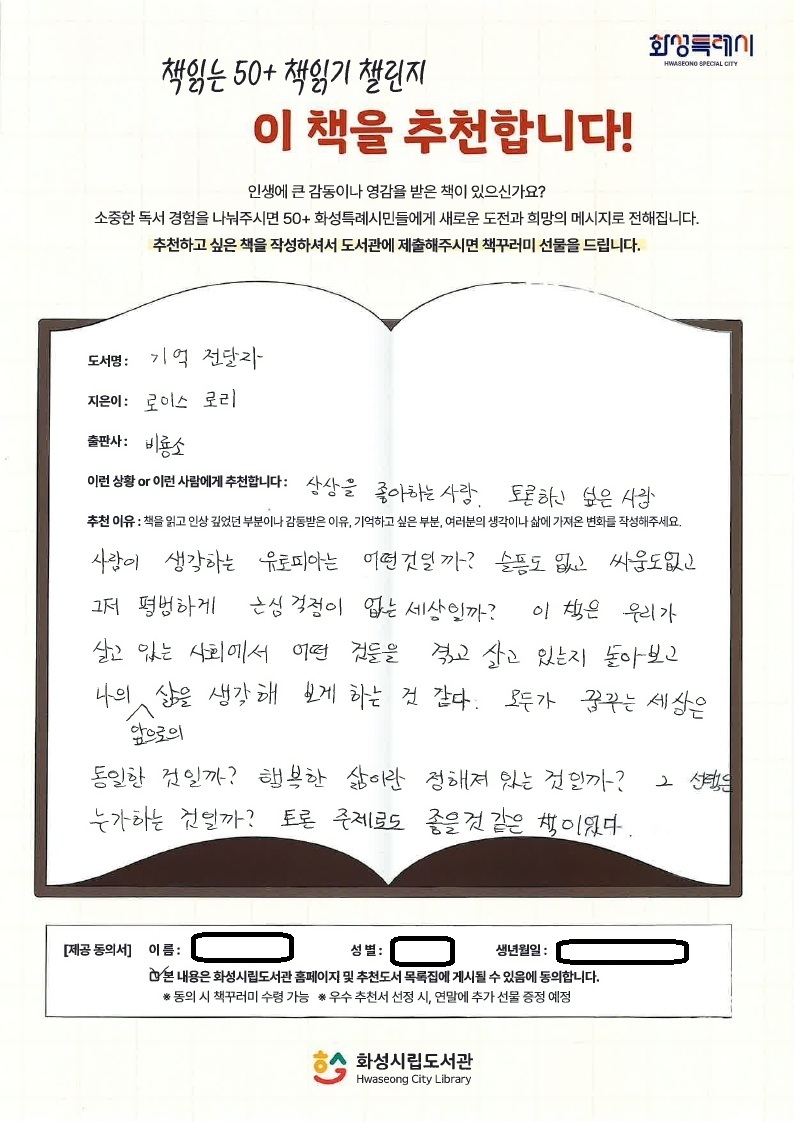 화성특례시
HWASEONG SPECIAL CITY
책읽는 50+ 책읽기 챌린지
이 책을 추천합니다!
인생에 큰 감동이나 영감을 받은 책이 있으신가요?
소중한 독서 경험을 나눠주시면 50+ 화성특례시민들에게 새로운 도전과 희망의 메시지로 전해집니다.
추천하고 싶은 책을 작성하셔서 도서관에 제출해주시면 책꾸러미 선물을 드립니다.
도서명 : 기억 전달자
지은이 : 로이스 로리
출판사 : 비룡소
이런 상황 or 이런 사람에게 추천합니다 : 상상을 좋아하는 사람. 토론하고 싶은 사람
추천 이유 : 책을 읽고 인상 깊었던 부분이나 감동받은 이유, 기억하고 싶은 부분, 여러분의 생각이나 삶에 가져온 변화를 작성해주세요.
사람이 생각하는 유토피아는 어떤것일까? 슬픔도 없고 싸움도없고
그저 평범하게 근심 걱정이 없는 세상일까? 이 책은 우리가
살고 있는 사회에서 어떤 것들을 겪고 살고 있는지 돌아보고
나의 삶을 생각해 보게 하는 것 같다. 모두가 꿈꾸는 세상은
앞으로의
동일한 것일까? 행복한 삶이란 정해져 있는 것일까? 그 선택은
누가하는 것일까? 토론 주제로도 좋을것 같은 책이었다.
[제공 동의서] 이 름 : 성 별 : 생년월일 :
본 내용은 화성시립도서관 홈페이지 및 추천도서 목록집에 게시될 수 있음에 동의합니다.
※ 동의 시 책꾸러미 수령 가능 ※ 우수 추천서 선정 시, 연말에 추가 선물 증정 예정
화성시립도서관
Hwaseong City Library